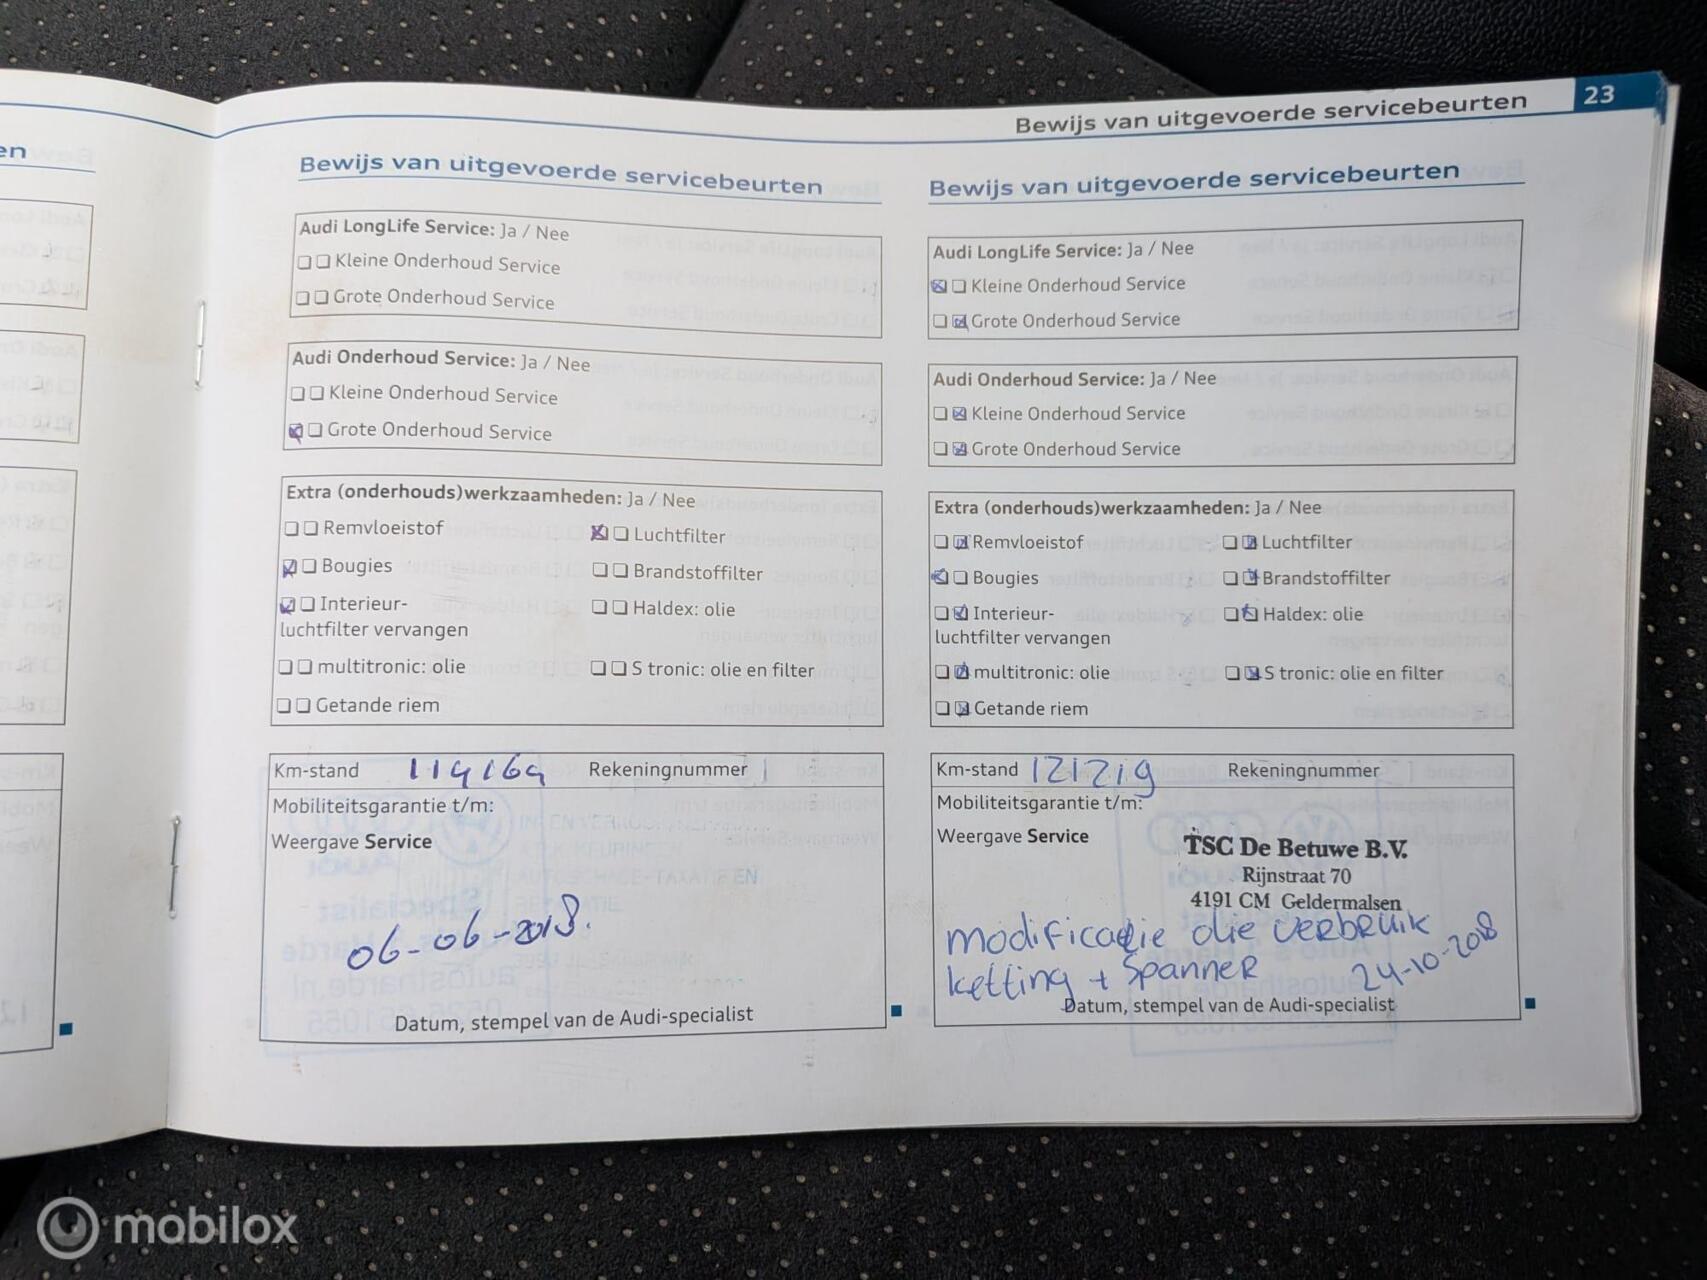 en
Bewijs van uitgevoerde servicebeurten 23
Bewijs van uitgevoerde servicebeurten
Audi LongLife Service: Ja / Nee
Kleine Onderhoud Service
Grote Onderhoud Service
Audi Onderhoud Service: Ja / Nee
Kleine Onderhoud Service
Grote Onderhoud Service
Extra (onderhouds)werkzaamheden: Ja / Nee
Remvloeistof
Luchtfilter
Bougies
Brandstoffilter
Interieur-
luchtfilter vervangen
Haldex: olie
multitronic: olie
S tronic: olie en filter
Getande riem
Km-stand 114164 Rekeningnummer
Mobiliteitsgarantie t/m:
Weergave Service
06-06-2018.
Datum, stempel van de Audi-specialist
Bewijs van uitgevoerde servicebeurten
Audi LongLife Service: Ja / Nee
Kleine Onderhoud Service
Grote Onderhoud Service
Audi Onderhoud Service: Ja / Nee
Kleine Onderhoud Service
Grote Onderhoud Service
Extra (onderhouds)werkzaamheden: Ja / Nee
Remvloeistof
Luchtfilter
Bougies
Brandstoffilter
Interieur-
luchtfilter vervangen
Haldex: olie
multitronic: olie
S tronic: olie en filter
Getande riem
Km-stand 121219 Rekeningnummer
Mobiliteitsgarantie t/m:
Weergave Service
TSC De Betuwe B.V.
Rijnstraat 70
4191 CM Geldermalsen
modificatie olie verbruik
ketting + Spanner 24-10-2018
Datum, stempel van de Audi-specialist
mobilox